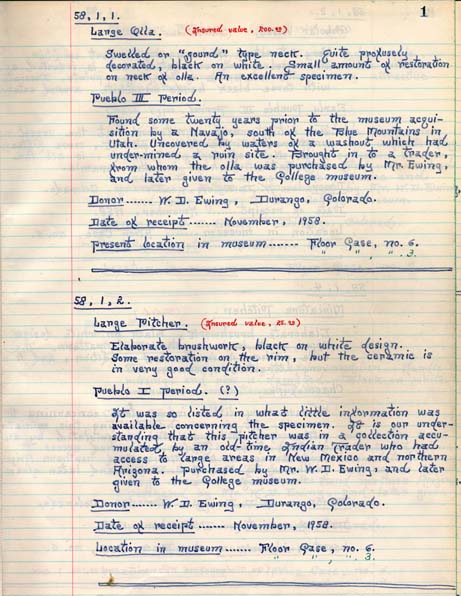 1
58,1,1.
Large Olla. (Insured value, 200.00)
Swelled or "gourd" type neck. Quite profusely
decorated, black on white. Small amount of restoration
on neck of olla. An excellent specimen.
Pueblo III Period.
Found some twenty years prior to the museum acqui-
sition by a Navajo, south of the Blue Mountains in
Utah. Uncovered by waters of a washout which had
under-mined a ruin site. Brought in to a trader,
from whom the olla was purchased by Mr. Ewing,
and later given to the College museum.
Donor ...... W. D. Ewing, Durango, Colorado.
Date of receipt ...... November, 1958.
Present location in museum ...... Floor Case, no. 6.
" " , " 3.
58,1,2.
Large Pitcher. (Insured value, 25.00)
Elaborate brushwork, black on white design.
Some restoration on the rim, but the ceramic is
in very good condition.
Pueblo I Period. (?)
It was so listed in what little information was
available concerning the specimen. It is our under-
standing that this pitcher was in a collection accu-
mulated by an old-time Indian Trader who had
access to large areas in New Mexico and northern
Arizona. Purchased by Mr. W. D. Ewing, and later
given to the College museum.
Donor ...... W. D. Ewing, Durango, Colorado.
Date of receipt ...... November, 1958.
Location in museum ...... Floor Case, no. 6.
" " , " 3.